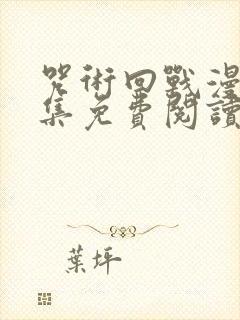 咒術回戰漫
集免費閱讀
葉坪